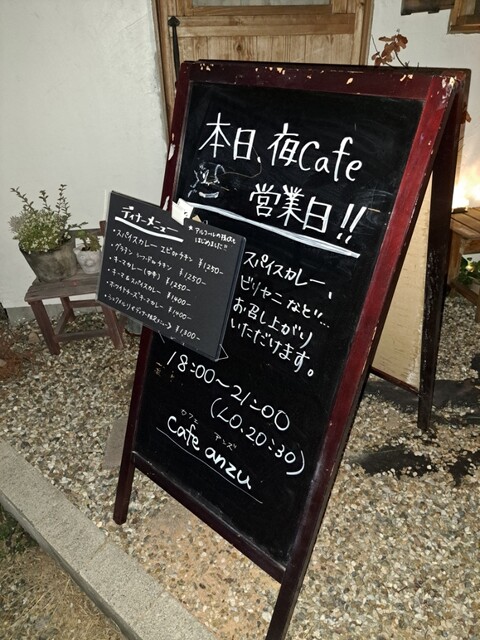 本日、夜Cafe
営業日!!
スパイスカレー、
ビリヤニなど!!...
お召し上がり
いただけます。
18:00~21:00
(LO.20:30)
カフェ アンズ
cafe anzu
ディナーメニュー
★アルコールの提供も
はじめました!!
・スパイスカレー エビorチキン ¥1250-
チキン ¥1250-
・キーマカレー ¥1250-
・キーマ&スパイスカレー ¥1400-
・ホワイトチーズキーマカレー ¥1400-
¥1300-